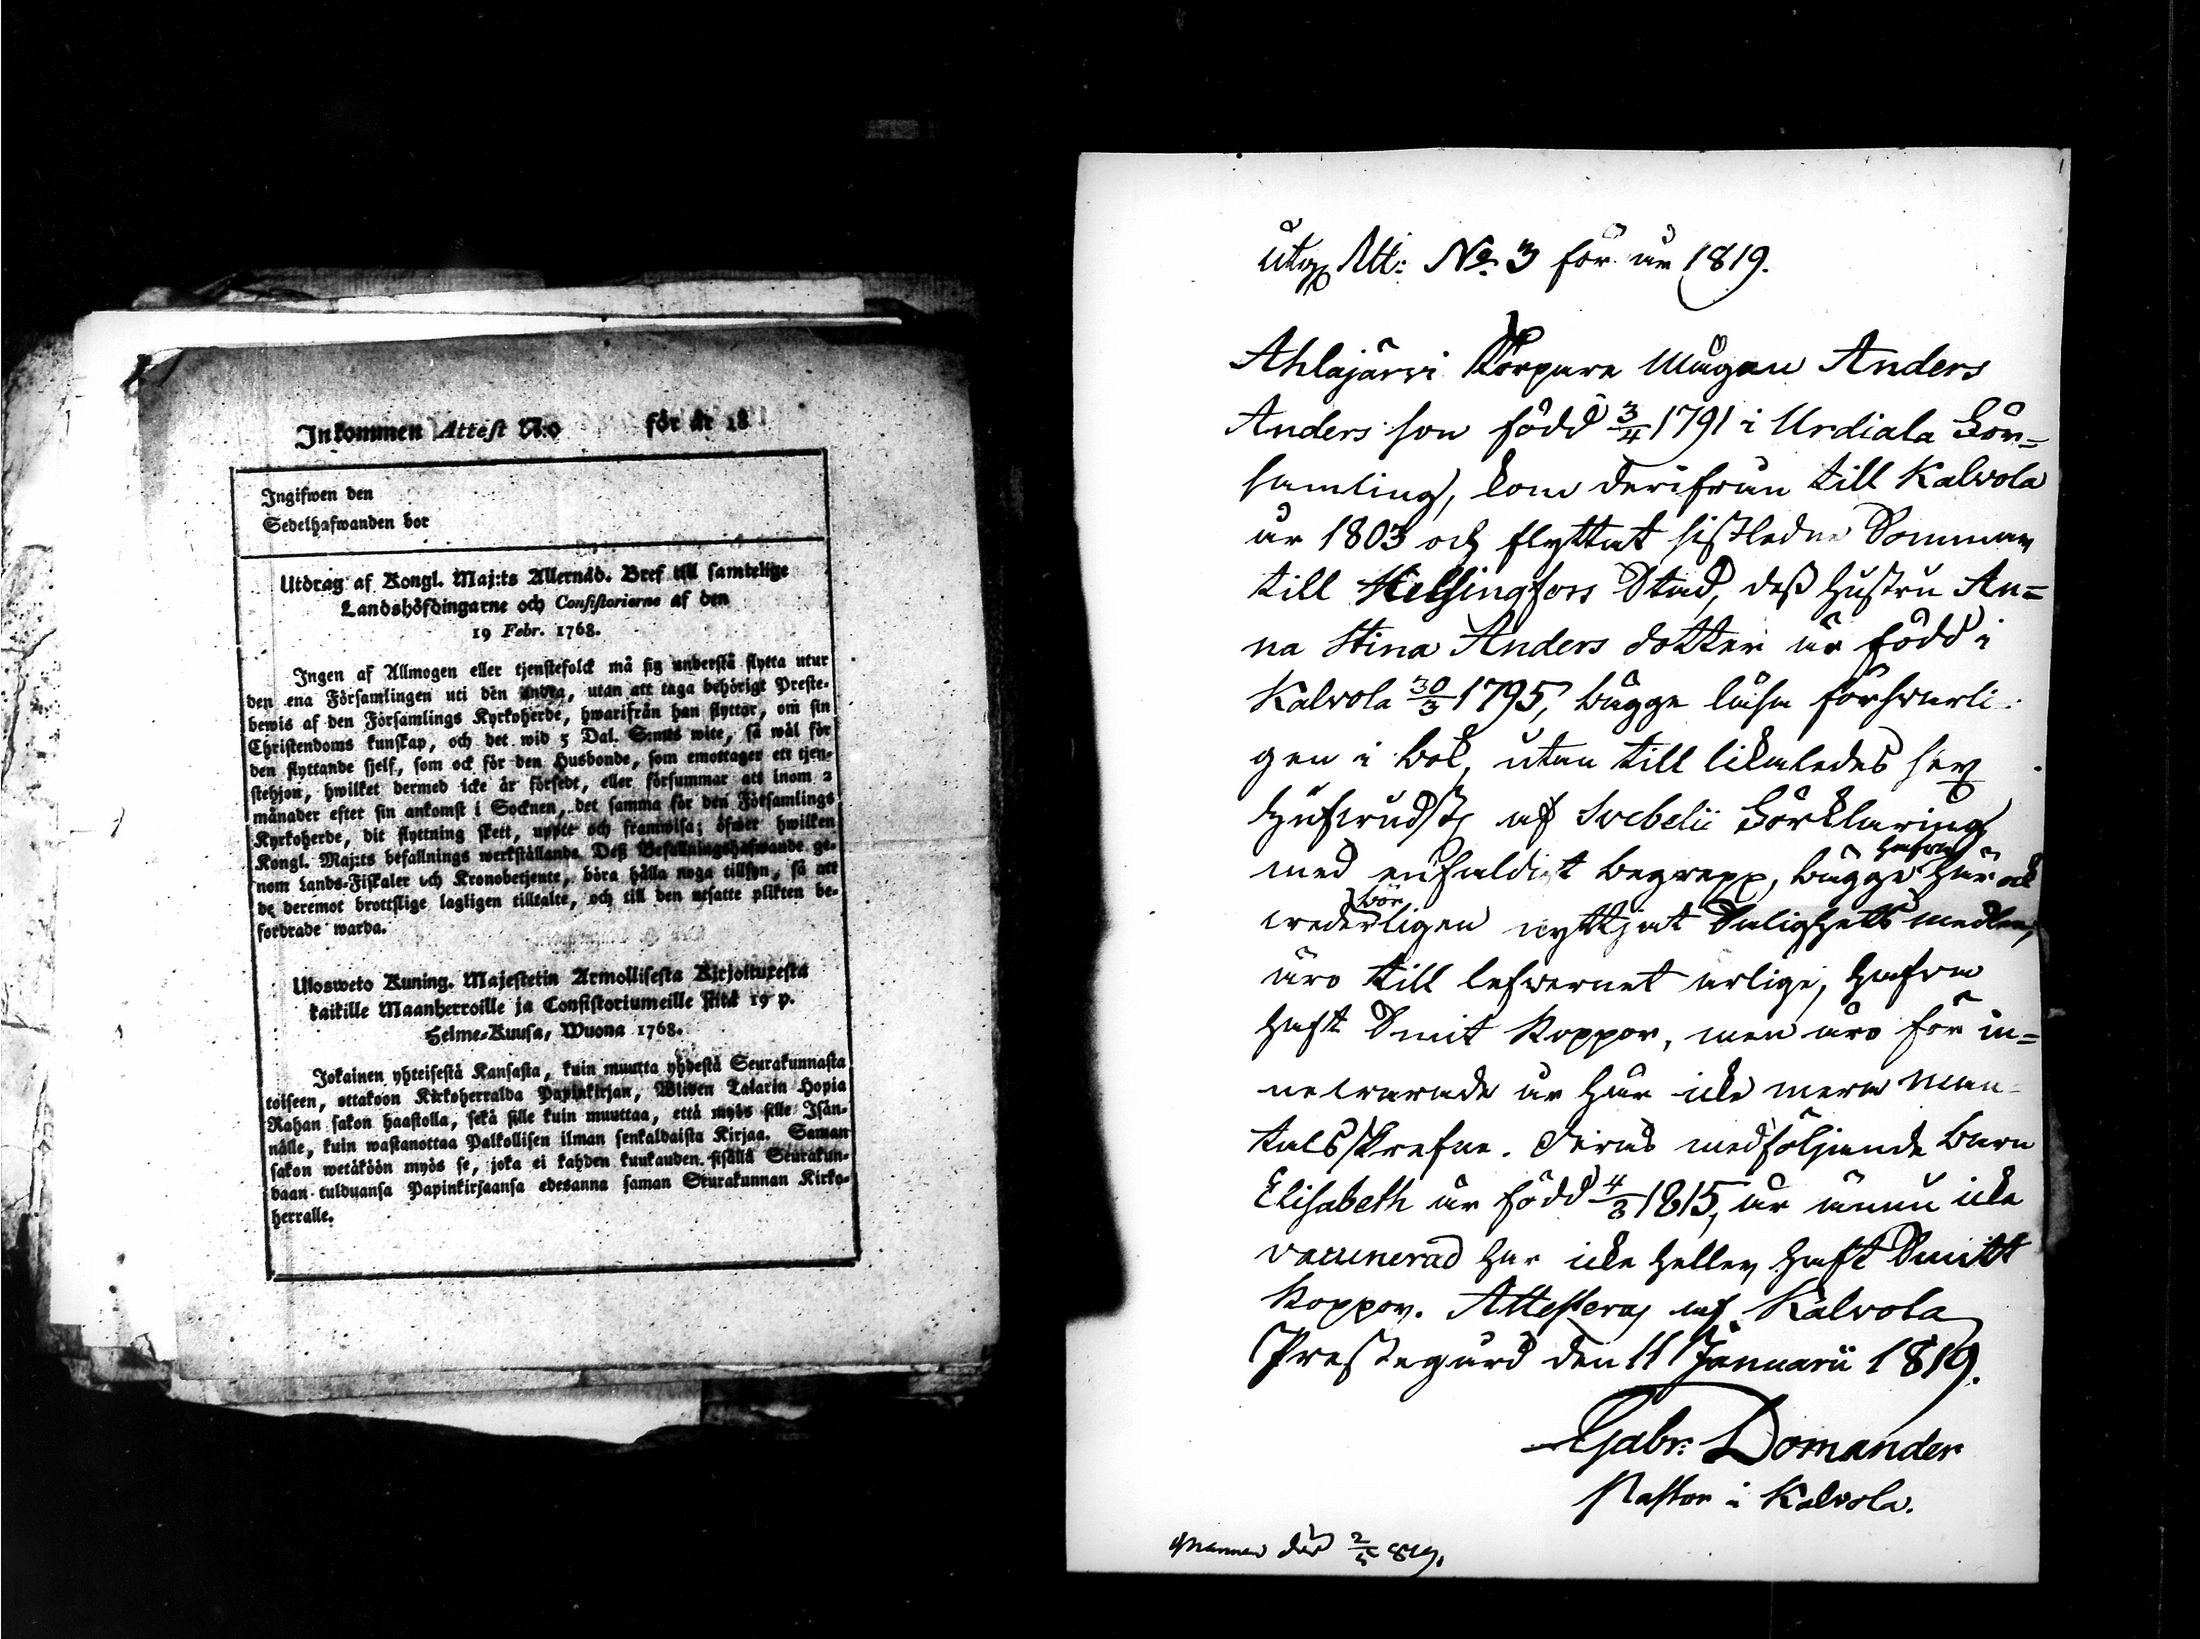 Inkommen Attest N:o för år 18
Ingifwen den
Sedelhafwanden bor
Utdrag af Kongl. Maj:ts Allernåd. Bref till samtelige
Landshöfdingarne och Consistorierne af den
19 Febr. 1768.
Ingen af Allmogen eller tjenstefolck må sig understå flytta utur
den ena Församlingen uti den andra, utan att taga behörigt Preste-
bewis af den Församlings Kyrkoherde, hwarifrån han flyttar, om sin
Christendoms kunskap, och det wid 5 Dal. S:mts wite, så wäl för
den flyttande sjelf, som ock för den Husbonde, som emottager ett tjen-
stehjon, hwilket dermed icke är försedt, eller försummar att inom 2
månader efter sin ankomst i Socknen, det samma för den Församlings
Kyrkoherde, dit flyttning skett, uppte och framwisa; öfwer hwilken
Kongl. Maj:ts befallnings werkställande Deß Befallningshafwande ge-
nom Lands-Fiskaler och Kronobetjente, böra hålla noga tillsyn, så att
de deremot brottslige lagligen tilltalte, och till den utsatte plikten be-
fordrade warda.
Ulosweto Kuning. Majestetin Armollisesta Kirjoituxesta
kaikille Maanherroille ja Consistoriumeille siitä 19 p.
Helme-Kuusa, Wuona 1768.
Jokainen yhteisestä Kansasta, kuin muutta yhdestä Seurakunnasta
toiseen, ottakoon Kirkoherralda Papinkirjan, Wiiden Talarin Hopia
Rahan sakon haastolla, sekä sille kuin muuttaa, että myös sille Isän-
nälle, kuin wastanottaa Palkollisen ilman senkaldaista Kirjaa. Saman
sakon wetäköön myös se, joka ei kahden kuukauden sisällä Seurakun-
daan tulduansa Papinkirjaansa edesanna saman Seurakunnan Kirko-
herralle.
Utg. Att: No. 3 för år 1819.
Ahlajärvi Torpare Mågen Anders
Anders son född 3/4 1791 i Urdiala För=
samling, kom derifrån till Kalvola
år 1803 och flyttat sistledne Sommar
till Helsingfors Stad, deß hustru An=
na Stina Anders dotter är född i
Kalvola 30/3 1795, bägge läsa försvarli-
gen i bok, utan till likaledes
af Svebelii Förklaring
med enfaldigt begrepp, bägge hafva här ock
vederbörligen nyttjat Salighets medlen,
äro till lefvernet ärlige, hafva
haft Smit Koppor, men äro för in=
nevarande år här icke mera man-
talsskrefne. Deras medföljande barn
Elisabeth är född 4/3 1815, är ännu icke
vaccinerad har icke heller haft Smitt
koppor. Attesteras af Kalvola
Prestegård den 11 Januarii 1819.
Gabr: Domander
Pastor i Kalvola.
den 2/5 819.